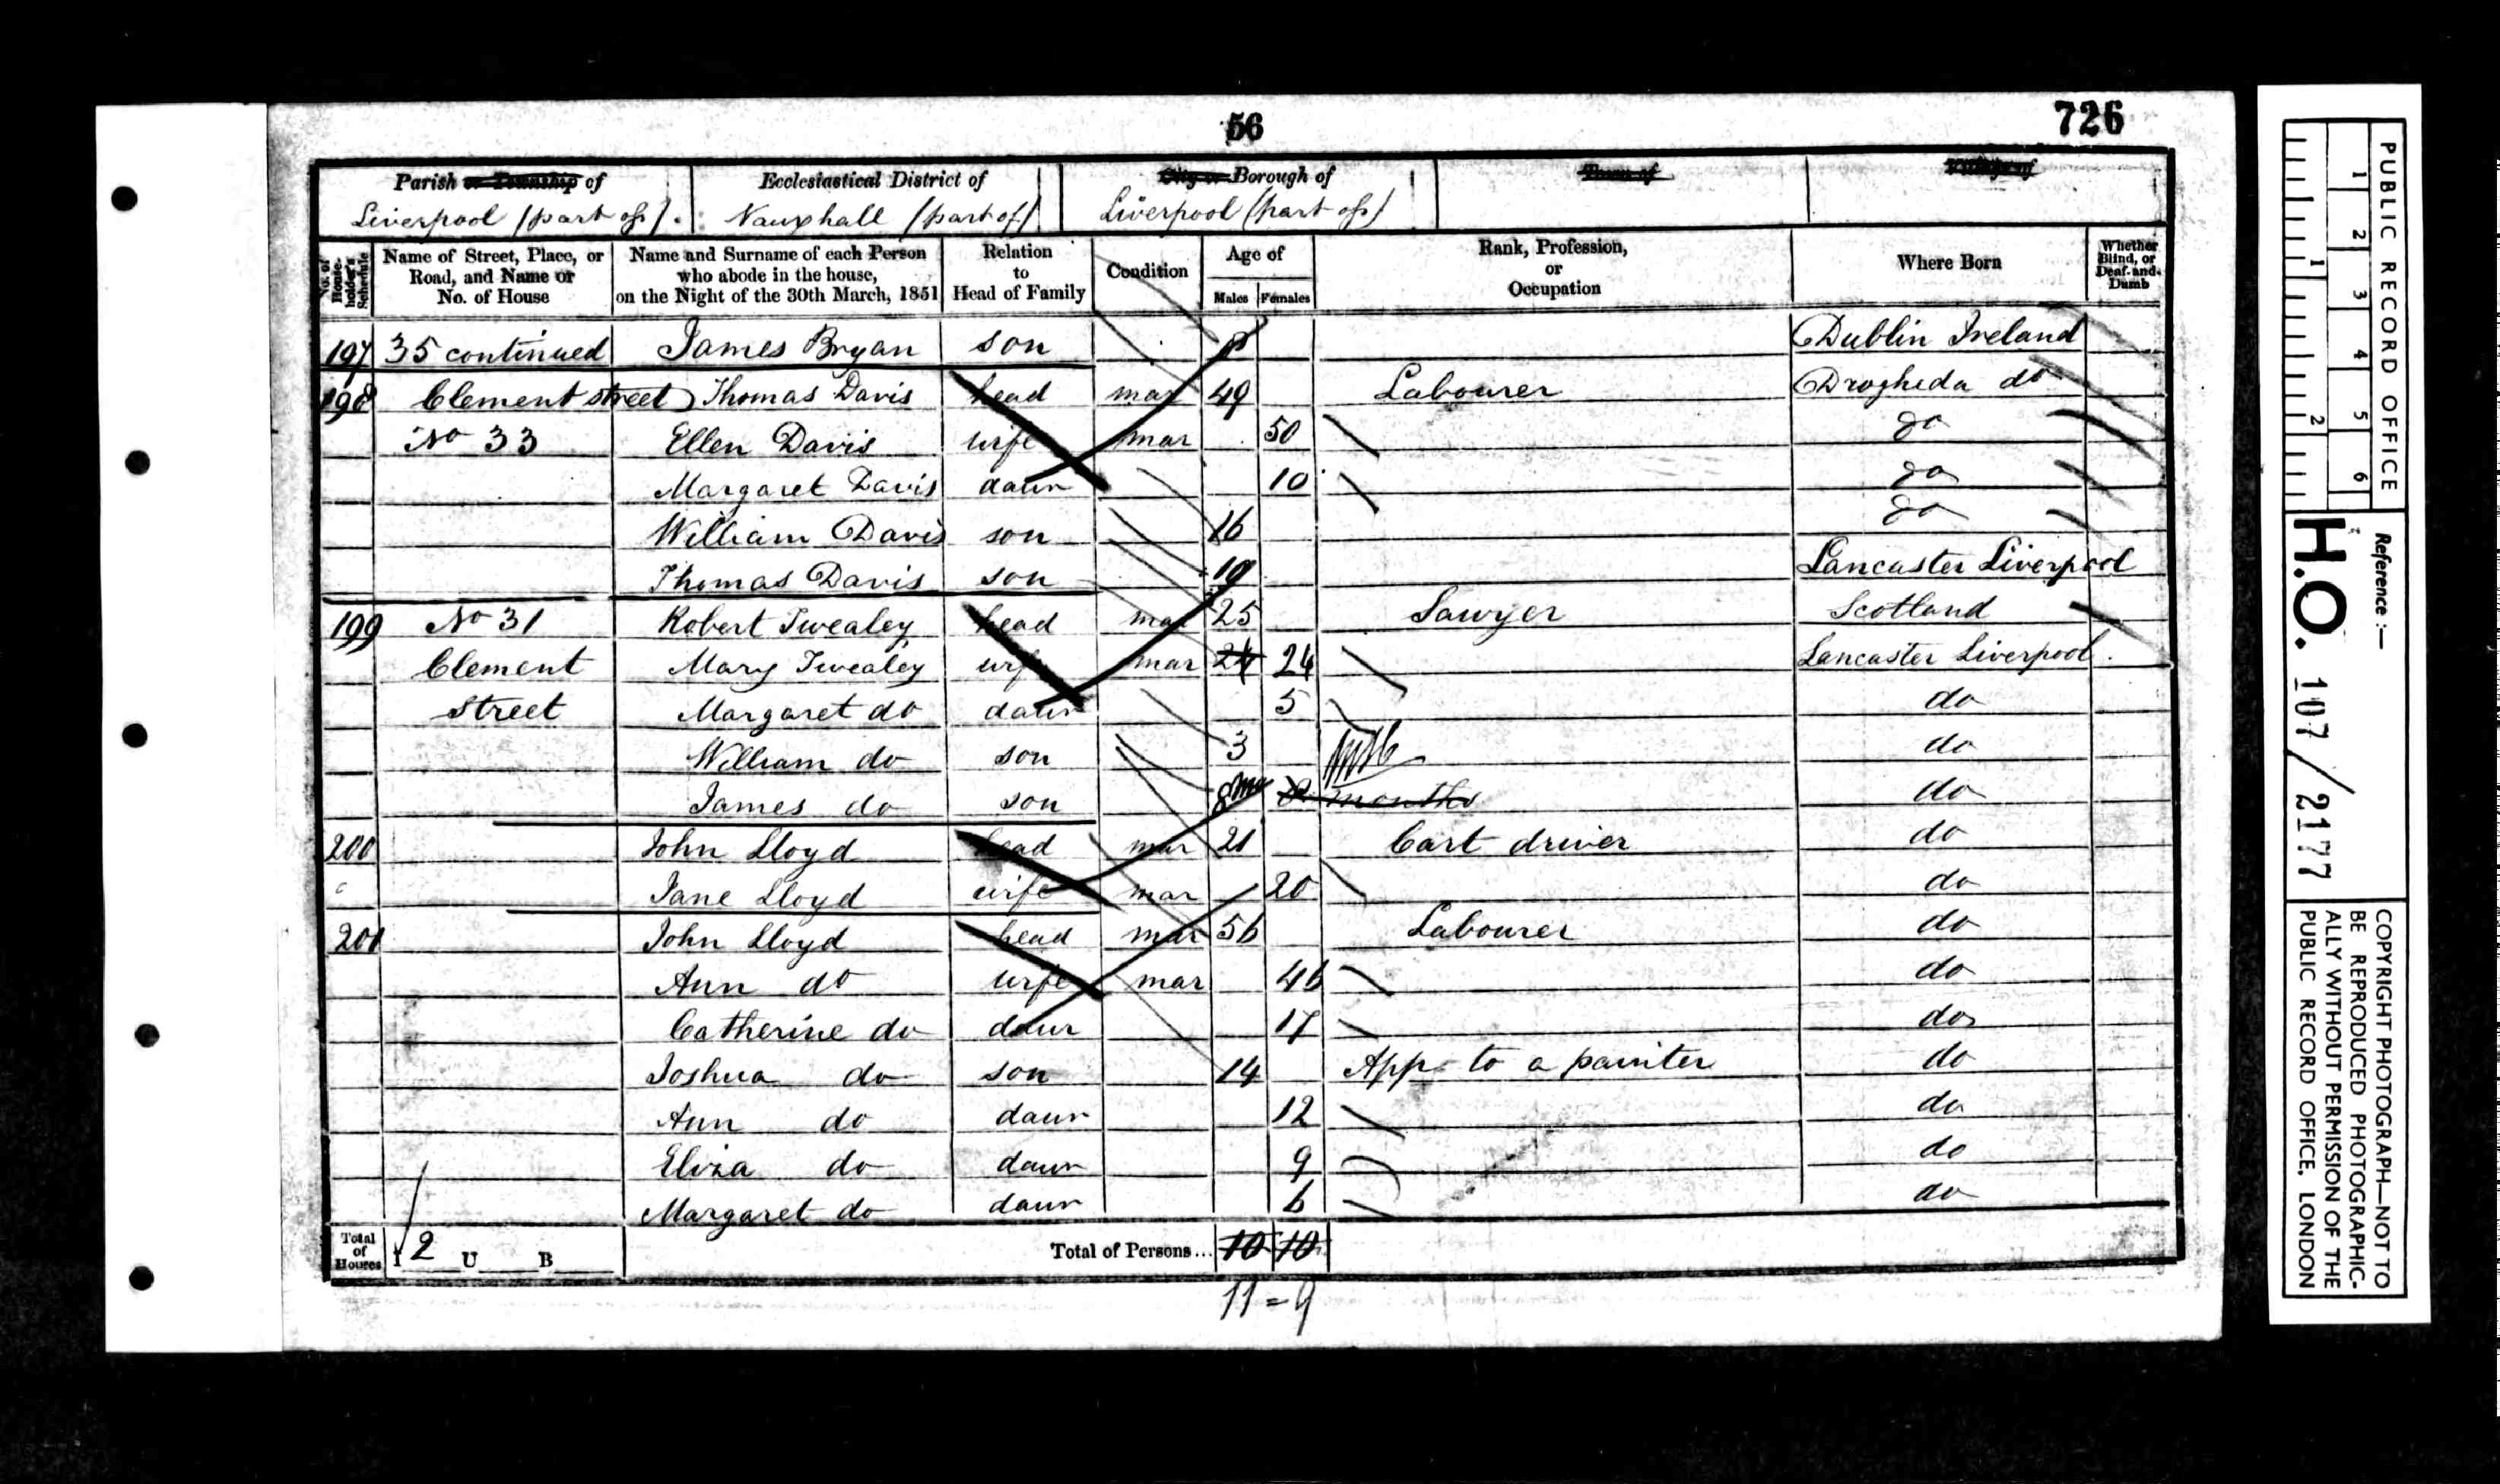 56
726
Parish or Township of
Liverpool (part of).
Ecclesiastical District of
Vauxhall (part of)
City or Borough of
Liverpool (part of)
Town of
Village of
No. of House-holder's Schedule
Name of Street, Place, or Road, and Name or No. of House
Name and Surname of each Person who abode in the house, on the Night of the 30th March, 1851
Relation to Head of Family
Condition
Age of
Males Females
Rank, Profession, or Occupation
Where Born
Whether Blind, or Deaf-and-Dumb
197 35 continued James Bryan son Dublin Ireland
198 Clement street Thomas Davis head mar 49 Labourer Drogheda do
No 33 Ellen Davis wife mar 50 do
Margaret Davis daur 10 do
William Davis son 16 do
Thomas Davis son 10 Lancaster Liverpool
199 No 31 Robert Twealey head mar 25 Sawyer Scotland
Clement Mary Twealey wife mar 24 24 Lancaster Liverpool
Street Margaret do daur 5 do
William do son 3 do
James do son 8 mo 8 months do
200 John Lloyd head mar 21 Cart driver do
Jane Lloyd wife mar 20 do
201 John Lloyd head mar 56 Labourer do
Ann do wife mar 46 do
Catherine do daur 17 do
Joshua do son 14 App to a painter do
Ann do daur 12 do
Eliza do daur 9 do
Margaret do daur 6 do
Total of Houses I 2 U B Total of Persons... 10 10
11 = 9
PUBLIC RECORD OFFICE
1 2 3 4 5 6
1 2
Reference:—
H.O. 107/2177
COPYRIGHT PHOTOGRAPH—NOT TO
BE REPRODUCED PHOTOGRAPHIC-
ALLY WITHOUT PERMISSION OF THE
PUBLIC RECORD OFFICE, LONDON